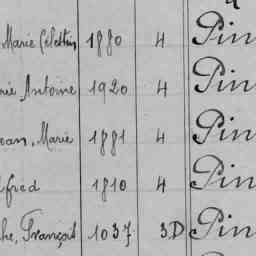 Marie Célestin 1880 4 Pin
rie Antoine 1920 4 Pin
ean, Marie 1881 4 Pin
lfred 1810 4 Pin
he, François 1037 3D Pin